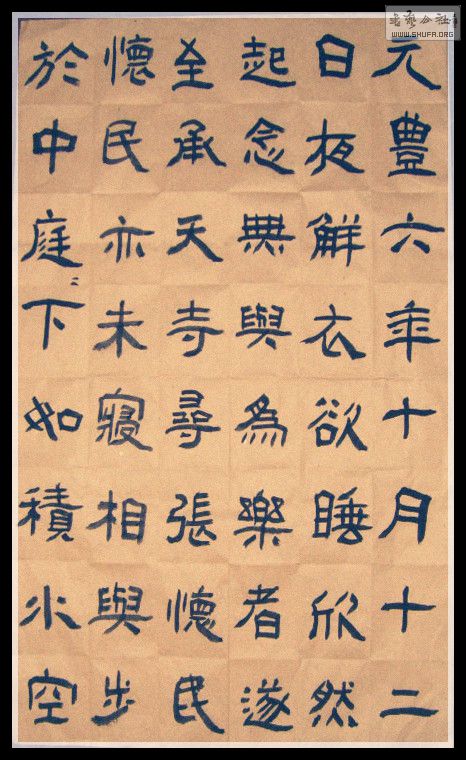 元豐六年十月十二
日夜觧衣欲睡欣然
起念無與為樂者遂
至承天寺尋張懷民
懷民亦未寢相與步
於中庭〻下如積水空
WWW.SHUFA.ORG